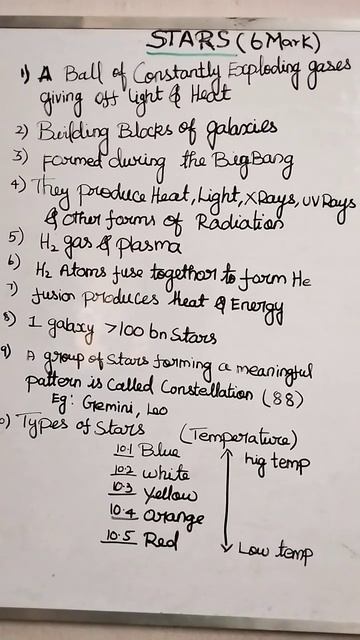 STARS (6 Mark)
1) A Ball of Constantly Exploding gases
giving off light & Heat
2) Building Blocks of galaxies
3) Formed during the BigBang
4) They produce Heat, Light, X Rays, UV Rays
& other forms of Radiation
5) H2 gas & plasma
6) H2 Atoms fuse together to form He
7) fusion produces Heat & Energy
8) 1 galaxy >100 bn Stars
9) A group of Stars forming a meaningful
pattern is Called Constellation (88)
Eg: Gemini, Leo
0) Types of Stars (Temperature)
10.1 Blue hig temp
10.2 white
10.3 yellow
10.4 orange
10.5 Red Low temp